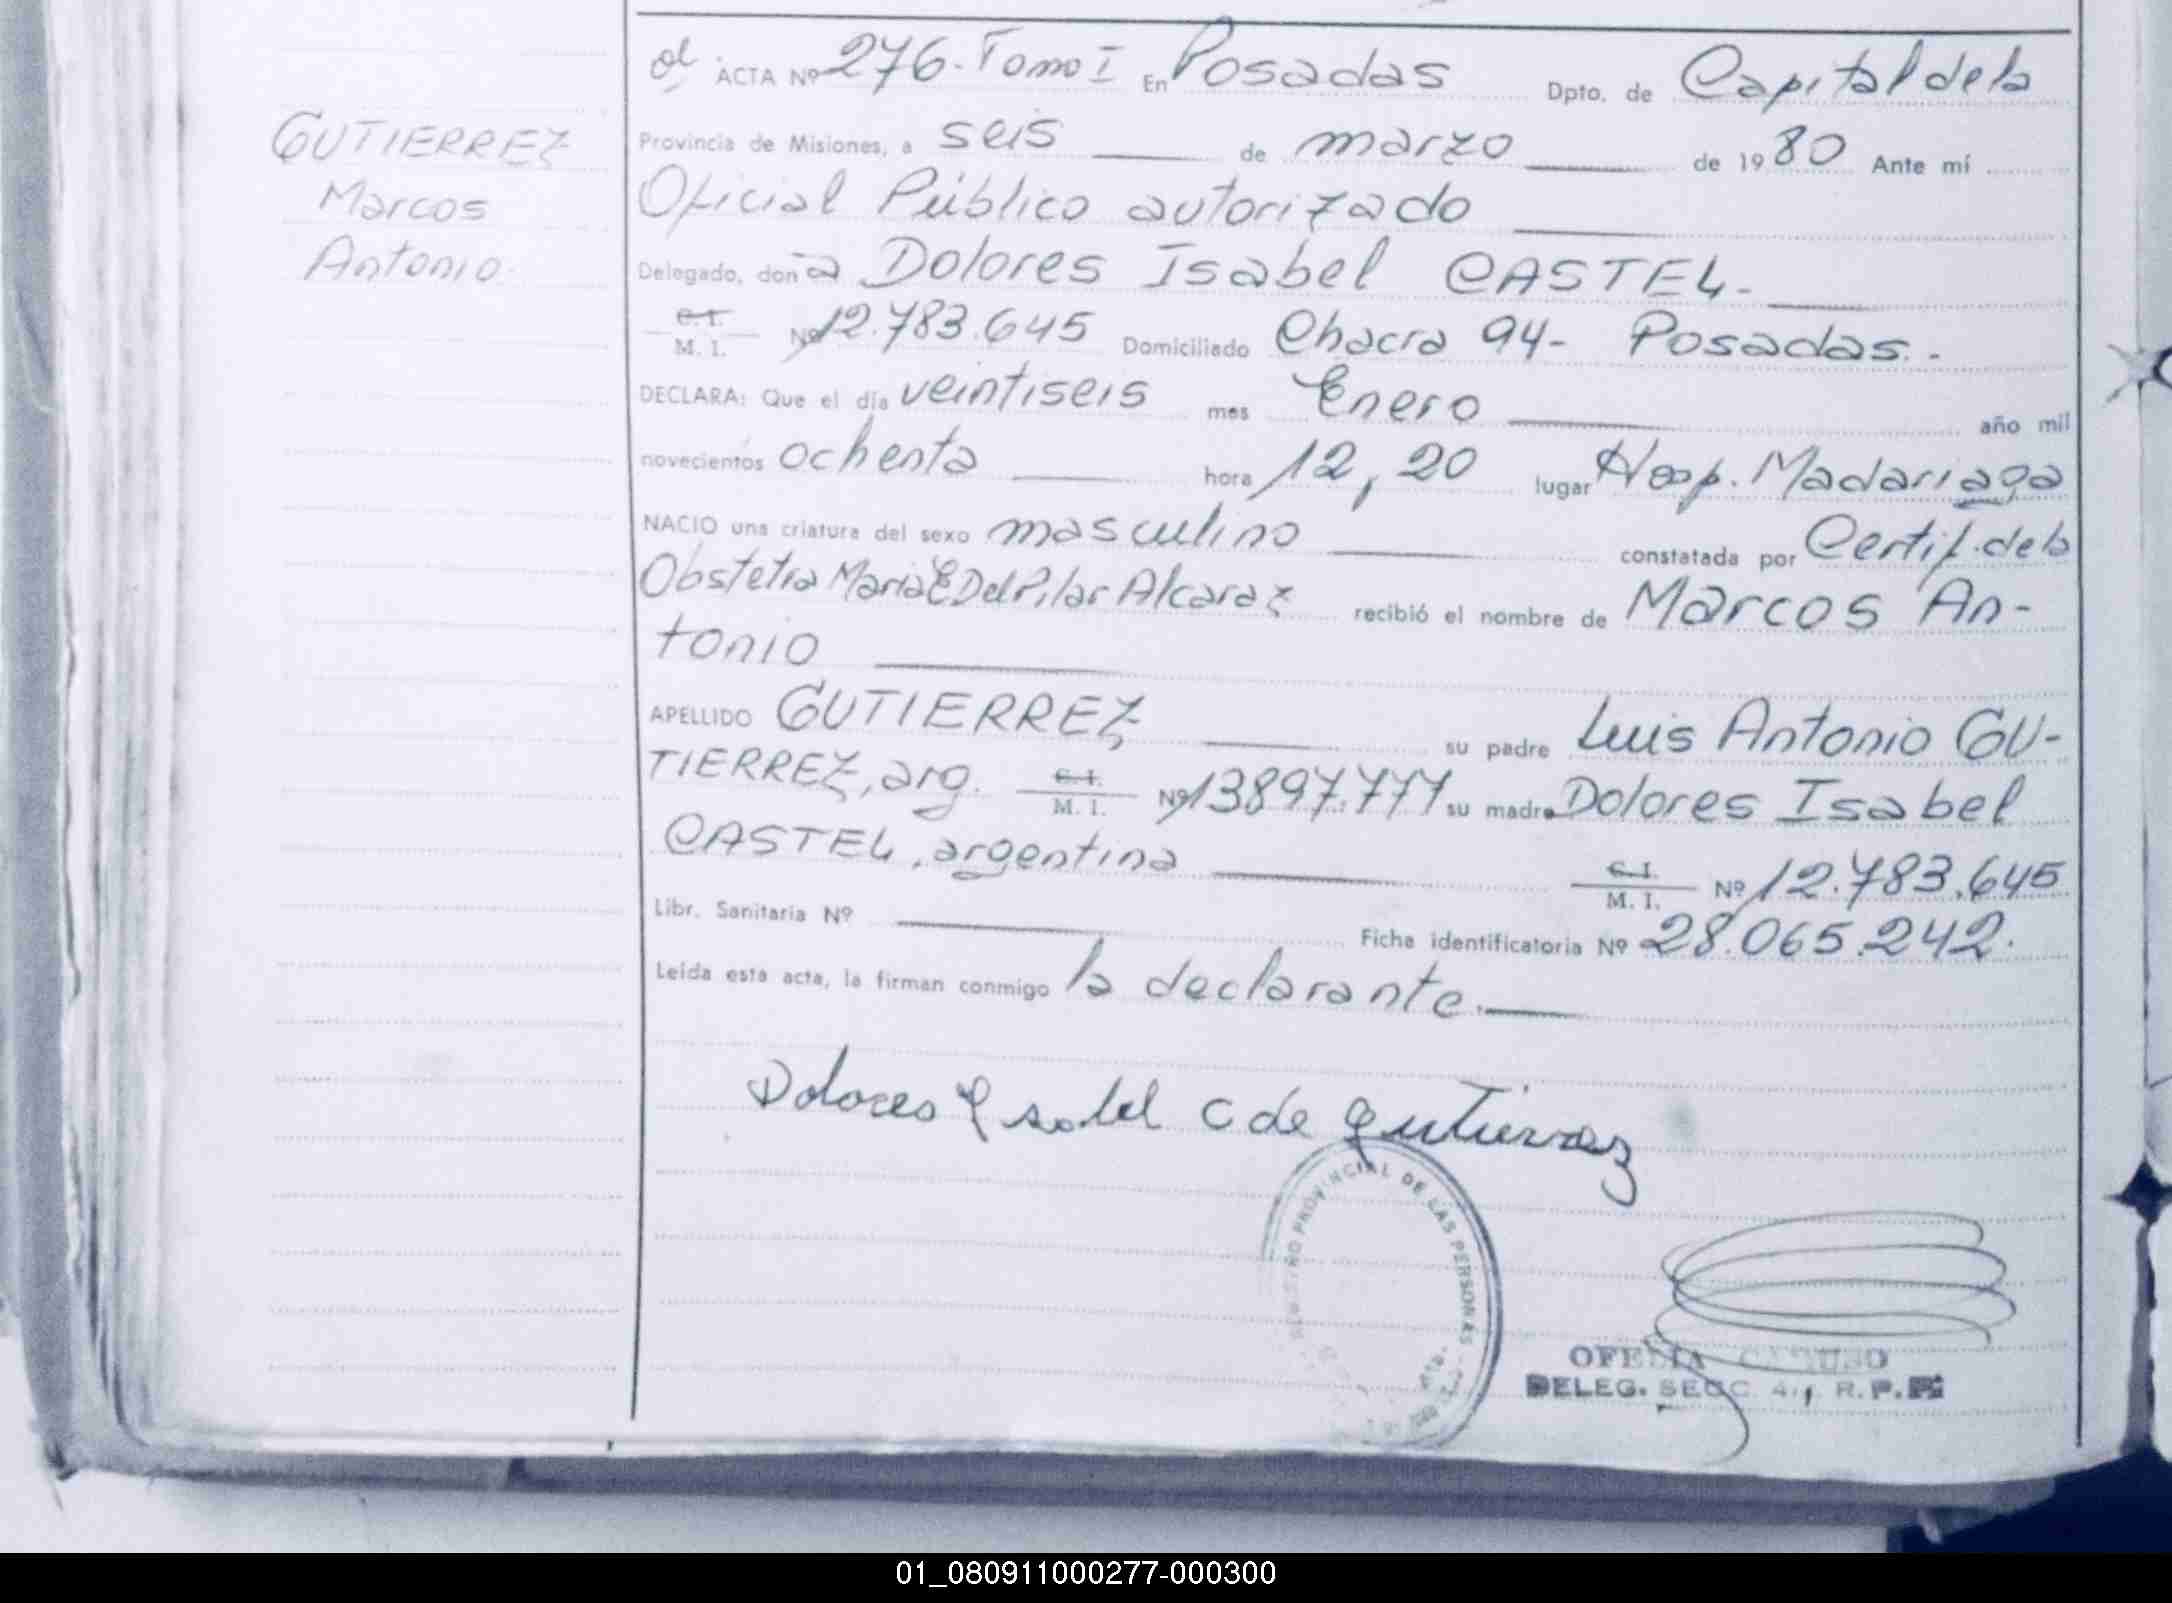 GUTIERREZ
Marcos
Antonio.
ACTA Nº 276. Tomo I En Posadas Dpto. de Capital de la
Provincia de Misiones, a seis de marzo de 1980 Ante mí
Oficial Público autorizado
Delegado, don a Dolores Isabel CASTEL.
C. I.
M. I. Nº 12.783.645 Domiciliado Chacra 94- Posadas.-
DECLARA: Que el día veintiseis mes Enero año mil
novecientos ochenta hora 12,20 lugar Hosp. Madariaga
NACIO una criatura del sexo masculino constatada por Certif. de la
Obstetra Maria E Del Pilar Alcaraz recibió el nombre de Marcos An-
tonio
APELLIDO GUTIERREZ su padre Luis Antonio GU-
TIERREZ, arg. C. I. M. I. Nº 13897.777 su madre Dolores Isabel
CASTEL, argentina C. I. M. I. Nº 12.783.645
Libr. Sanitaria Nº Ficha identificatoria Nº 28.065.242.
Leída esta acta, la firman conmigo la declarante.
Dolores Isabel C de Gutierrez
PROVINCIAL DE LAS PERSONAS
OFELIA CARUSO
DELEG. SECC. 4 R. P.
01_080911000277-000300